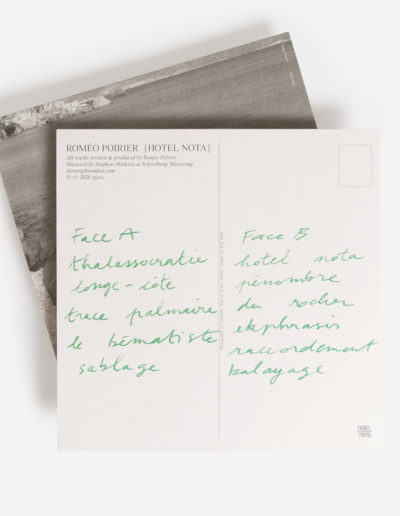 ROMÉO POIRIER [HOTEL NOTA]
All tracks written & produced by Roméo Poirier
Mastered by Stephan Mathieu at Schwebung Mastering.
distro@boomkat.com
℗+© 2020 sferic.
Face A
thalassocratie
longe-côte
trace palmaire
le bématiste
sablage
Face B
hotel nota
pénombre
du rocher
ekphrasis
raccordement
balayage